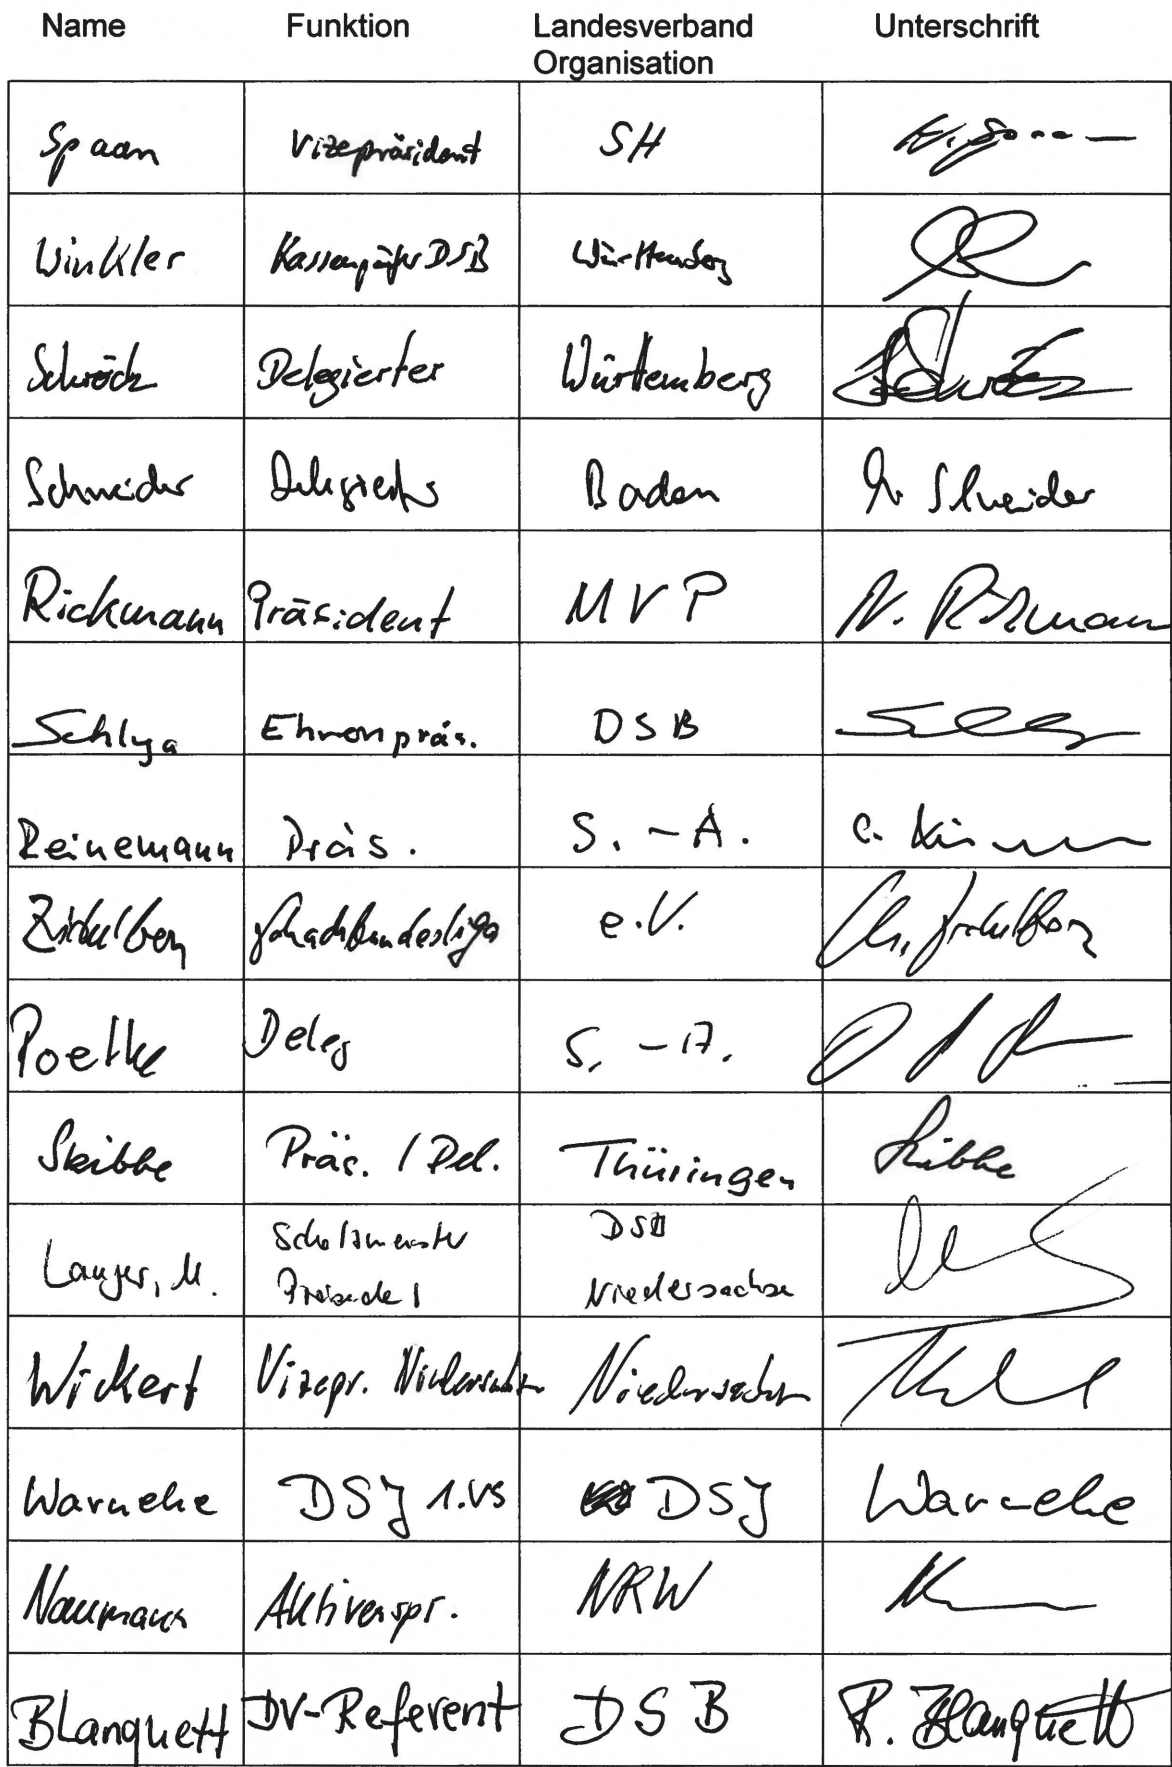 Name Funktion Landesverband Unterschrift
Organisation
Spaan Vizepräsident SH
Winkler Kassenprüfer DSB Württemberg
Schröck Delegierter Württemberg
Schneider Delegierter Baden Schneider
Rickmann Präsident MVP N. Rickmann
Schlya Ehrenpräs. DSB
Reinemann Präs. S.-A.
Schachbundesliga e.V.
Poetke Deleg S.-A.
Skibbe Präs. / Del. Thüringen Skibbe
Schatzmeister DSB
Langer, M.
Präsident Niedersachsen
Wickert Vizepr. Niedersachsen Niedersachsen
Warneke DSJ 1.VS DSJ Warneke
Naumann Aktivenspr. NRW
Blanquett DV-Referent DSB R. Blanquett